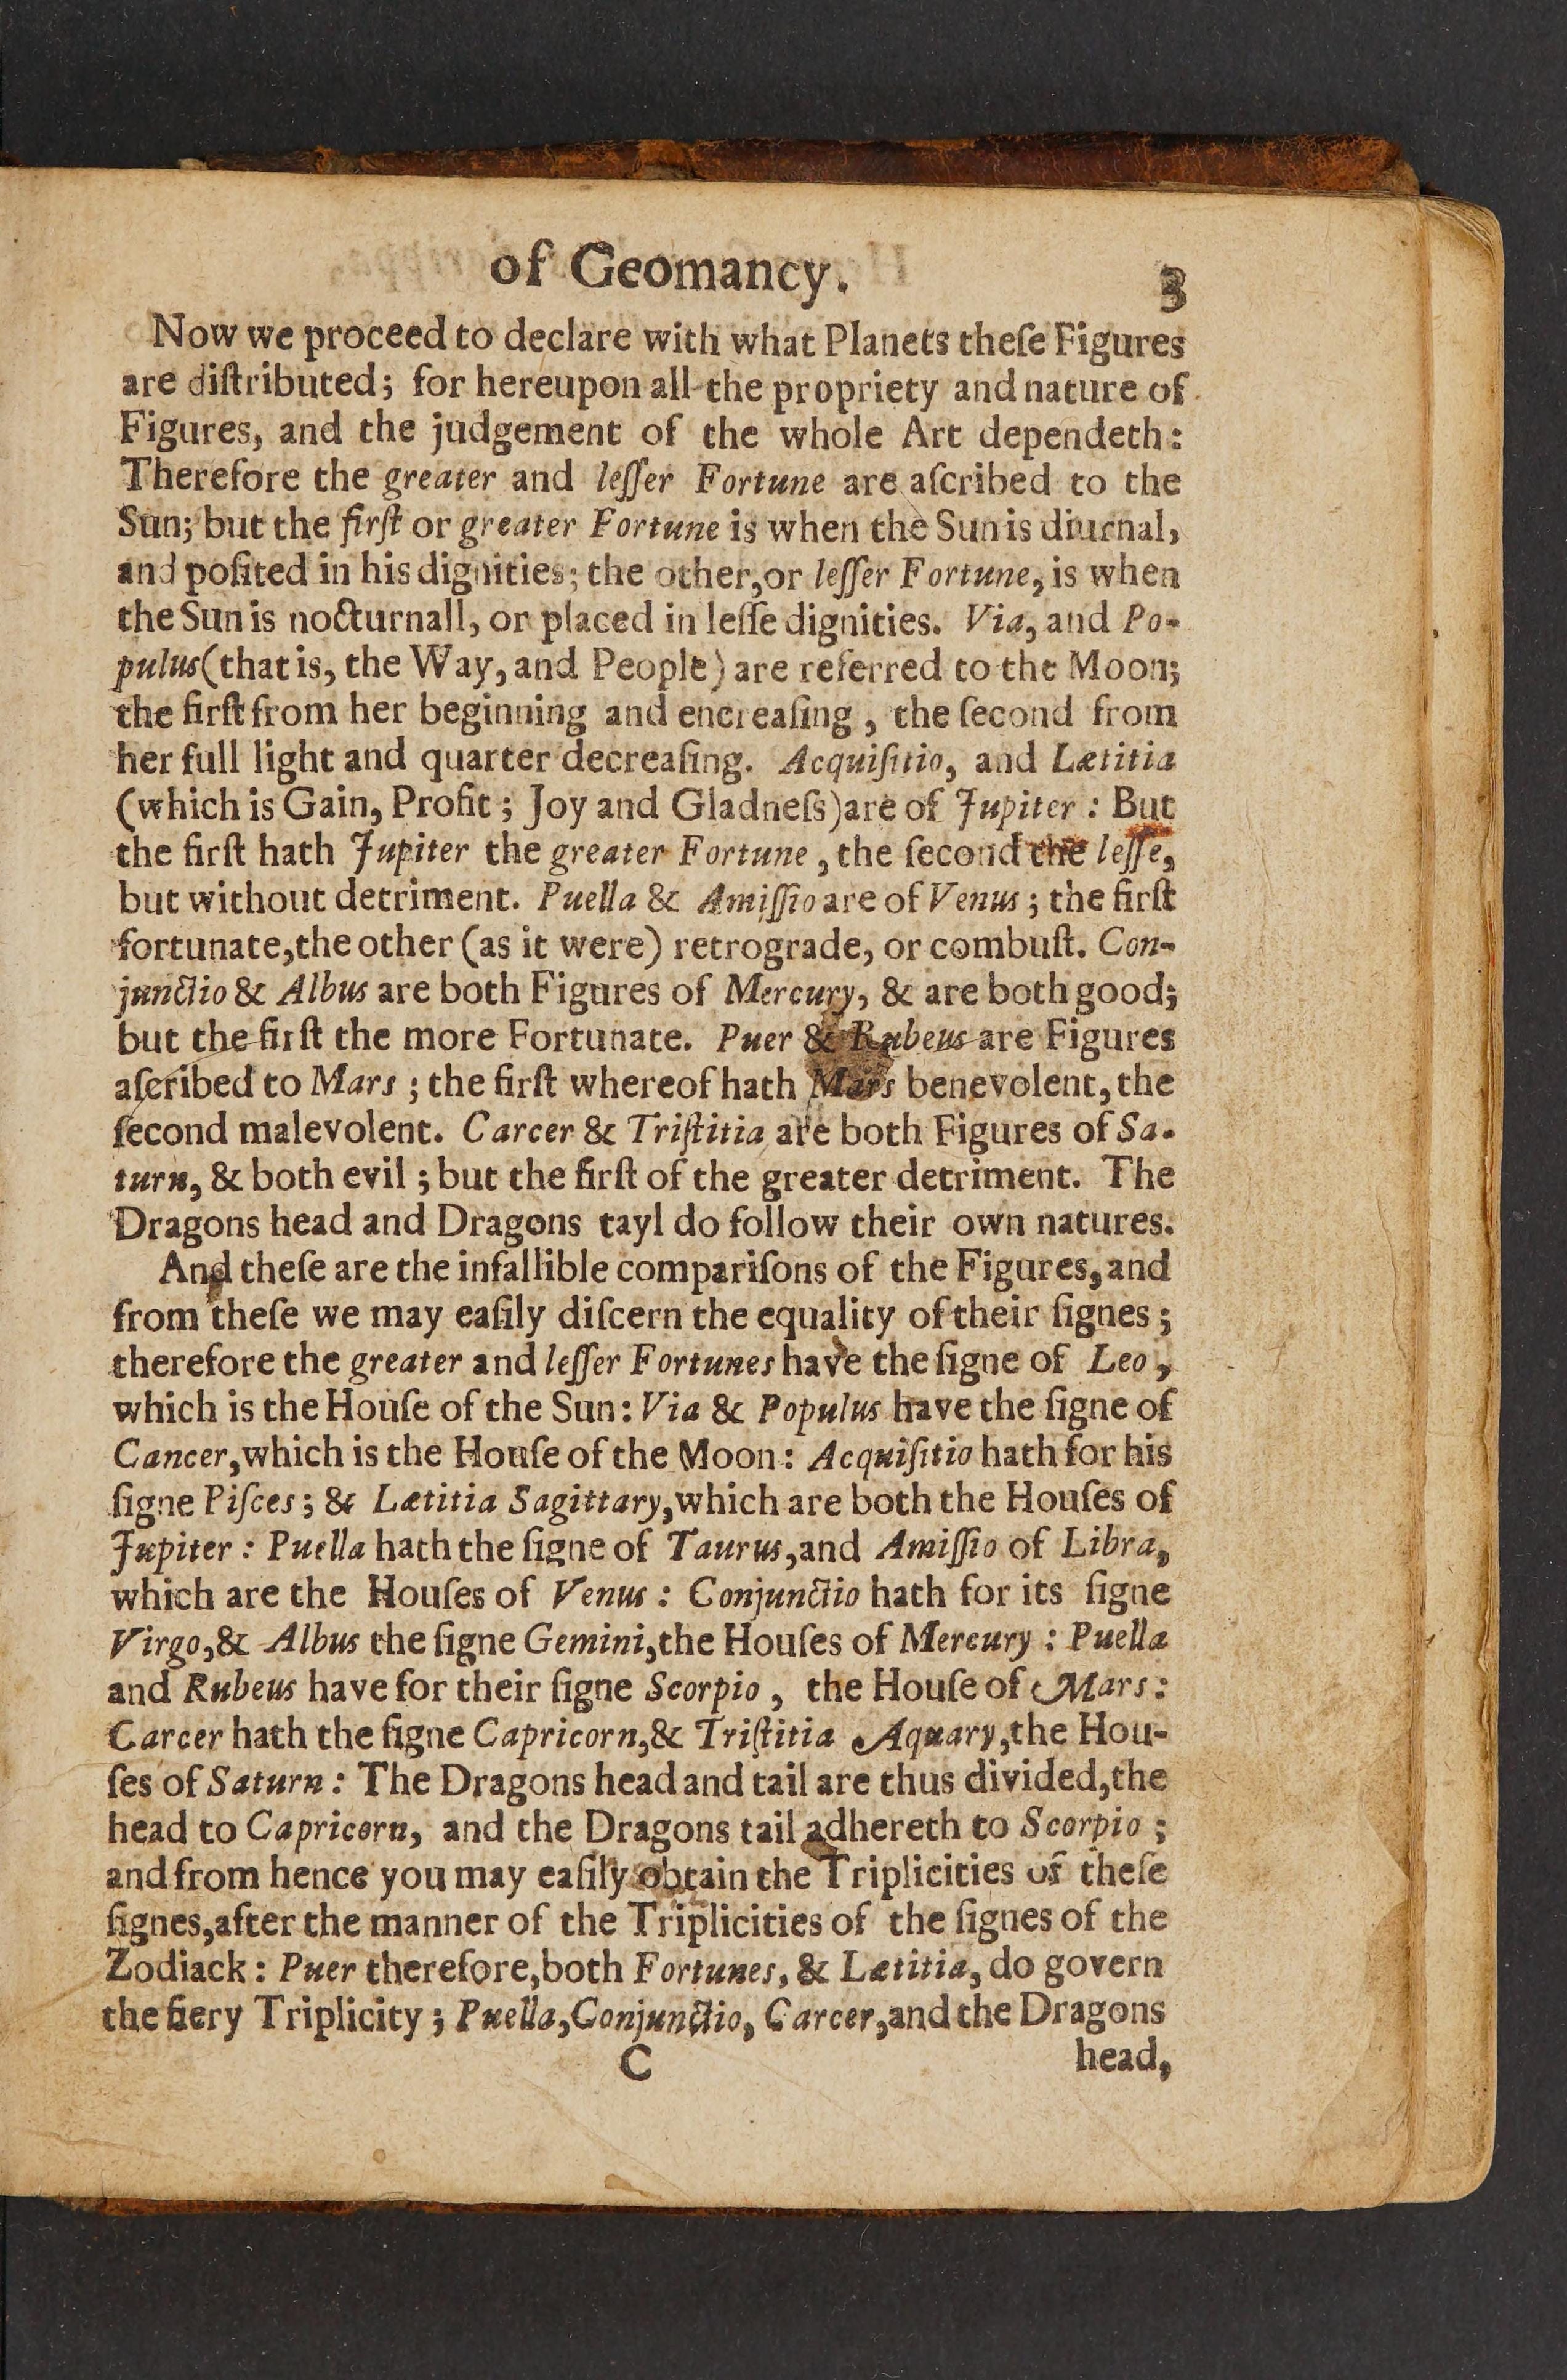 of Geomancy. 3
Now we proceed to declare with what Planets theſe Figures
are diſtributed; for hereupon all the propriety and nature of
Figures, and the judgement of the whole Art dependeth:
Therefore the greater and leſſer Fortune are aſcribed to the
Sun; but the firſt or greater Fortune is when the Sun is diurnal,
and poſited in his dignities; the other, or leſſer Fortune, is when
the Sun is nocturnall, or placed in leſſe dignities. Via, and Po-
pulus (that is, the Way, and People) are referred to the Moon;
the firſt from her beginning and encreaſing, the ſecond from
her full light and quarter decreaſing. Acquiſitio, and Lætitia
(which is Gain, Profit; Joy and Gladneſs) are of Jupiter: But
the firſt hath Jupiter the greater Fortune, the ſecond the leſſe,
but without detriment. Puella & Amiſſio are of Venus; the firſt
fortunate, the other (as it were) retrograde, or combuſt. Con-
junctio & Albus are both Figures of Mercury, & are both good;
but the firſt the more Fortunate. Puer & Rubeus are Figures
aſcribed to Mars; the firſt whereof hath Mars benevolent, the
ſecond malevolent. Carcer & Triſtitia are both Figures of Sa-
turn, & both evil; but the firſt of the greater detriment. The
Dragons head and Dragons tayl do follow their own natures.
And theſe are the infallible compariſons of the Figures, and
from theſe we may eaſily diſcern the equality of their ſignes;
therefore the greater and leſſer Fortunes have the ſigne of Leo,
which is the Houſe of the Sun: Via & Populus have the ſigne of
Cancer, which is the Houſe of the Moon: Acquiſitio hath for his
ſigne Piſces; & Lætitia Sagittary, which are both the Houſes of
Jupiter: Puella hath the ſigne of Taurus, and Amiſſio of Libra,
which are the Houſes of Venus: Conjunctio hath for its ſigne
Virgo, & Albus the ſigne Gemini, the Houſes of Mercury: Puella
and Rubeus have for their ſigne Scorpio, the Houſe of Mars:
Carcer hath the ſigne Capricorn, & Triſtitia Aquary, the Hou-
ſes of Saturn: The Dragons head and tail are thus divided, the
head to Capricorn, and the Dragons tail adhereth to Scorpio;
and from hence you may eaſily obtain the Triplicities of theſe
ſignes, after the manner of the Triplicities of the ſignes of the
Zodiack: Puer therefore, both Fortunes, & Lætitia, do govern
the fiery Triplicity; Puella, Conjunctio, Carcer, and the Dragons
C head,